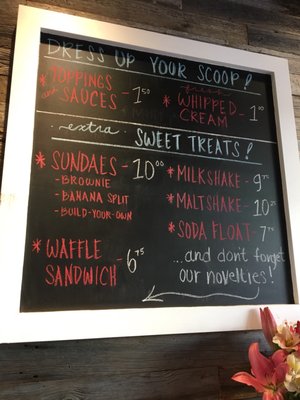 DRESS UP YOUR SCOOP!
* TOPPINGS
and SAUCES - 1 50
* fresh
WHIPPED - 1 00
CREAM
..extra..
SWEET TREATS!
* SUNDAES - 10 00
- BROWNIE
- BANANA SPLIT
- BUILD-YOUR-OWN
* WAFFLE
SANDWICH - 6 75
* MILKSHAKE - 9 75
* MALTSHAKE - 10 25
* SODA FLOAT - 7 75
...and don't forget
our novelties!